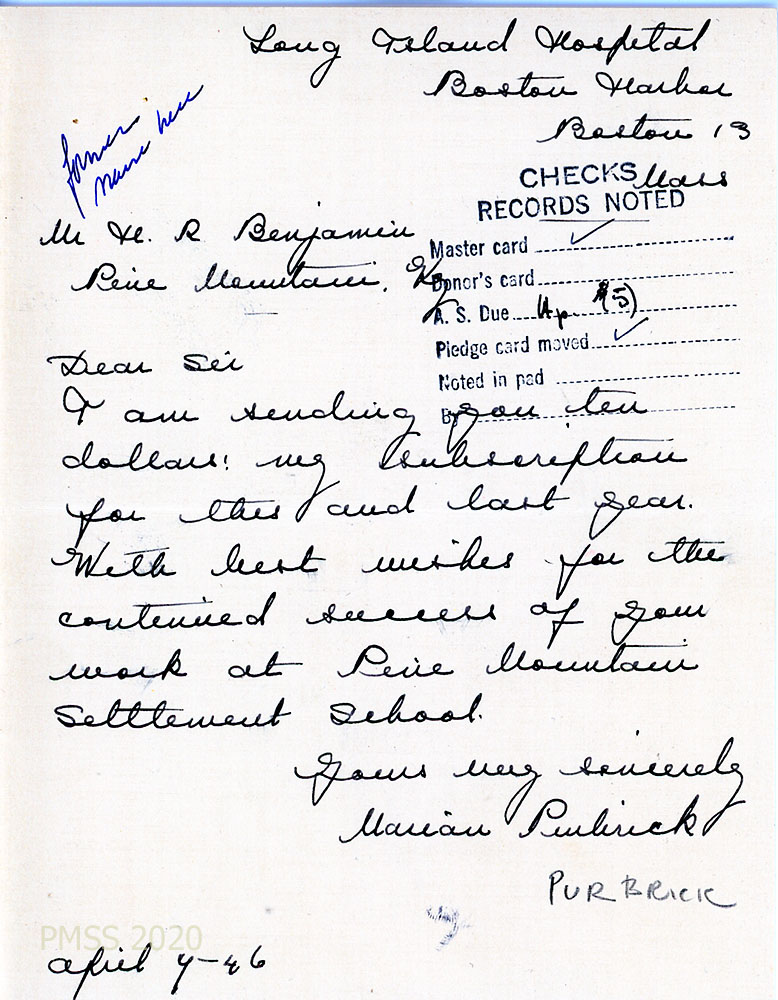 Long Island Hospital
Boston Harbor
Boston 13
Mass
former
nurse here
CHECKS
RECORDS NOTED
Master card
Donor's card
A. S. Due Up $(5)
Pledge card moved
Noted in pad
By
Mr H. R Benjamin
Pine Mountain, Ky
Dear Sir
I am sending you ten
dollars: my subscription
for this and last year.
With best wishes for the
continued success of your
work at Pine Mountain
Setttlement School.
Yours very sincerely
Marian Purbrick
PURBRICK
PMSS 2020
april 4-46